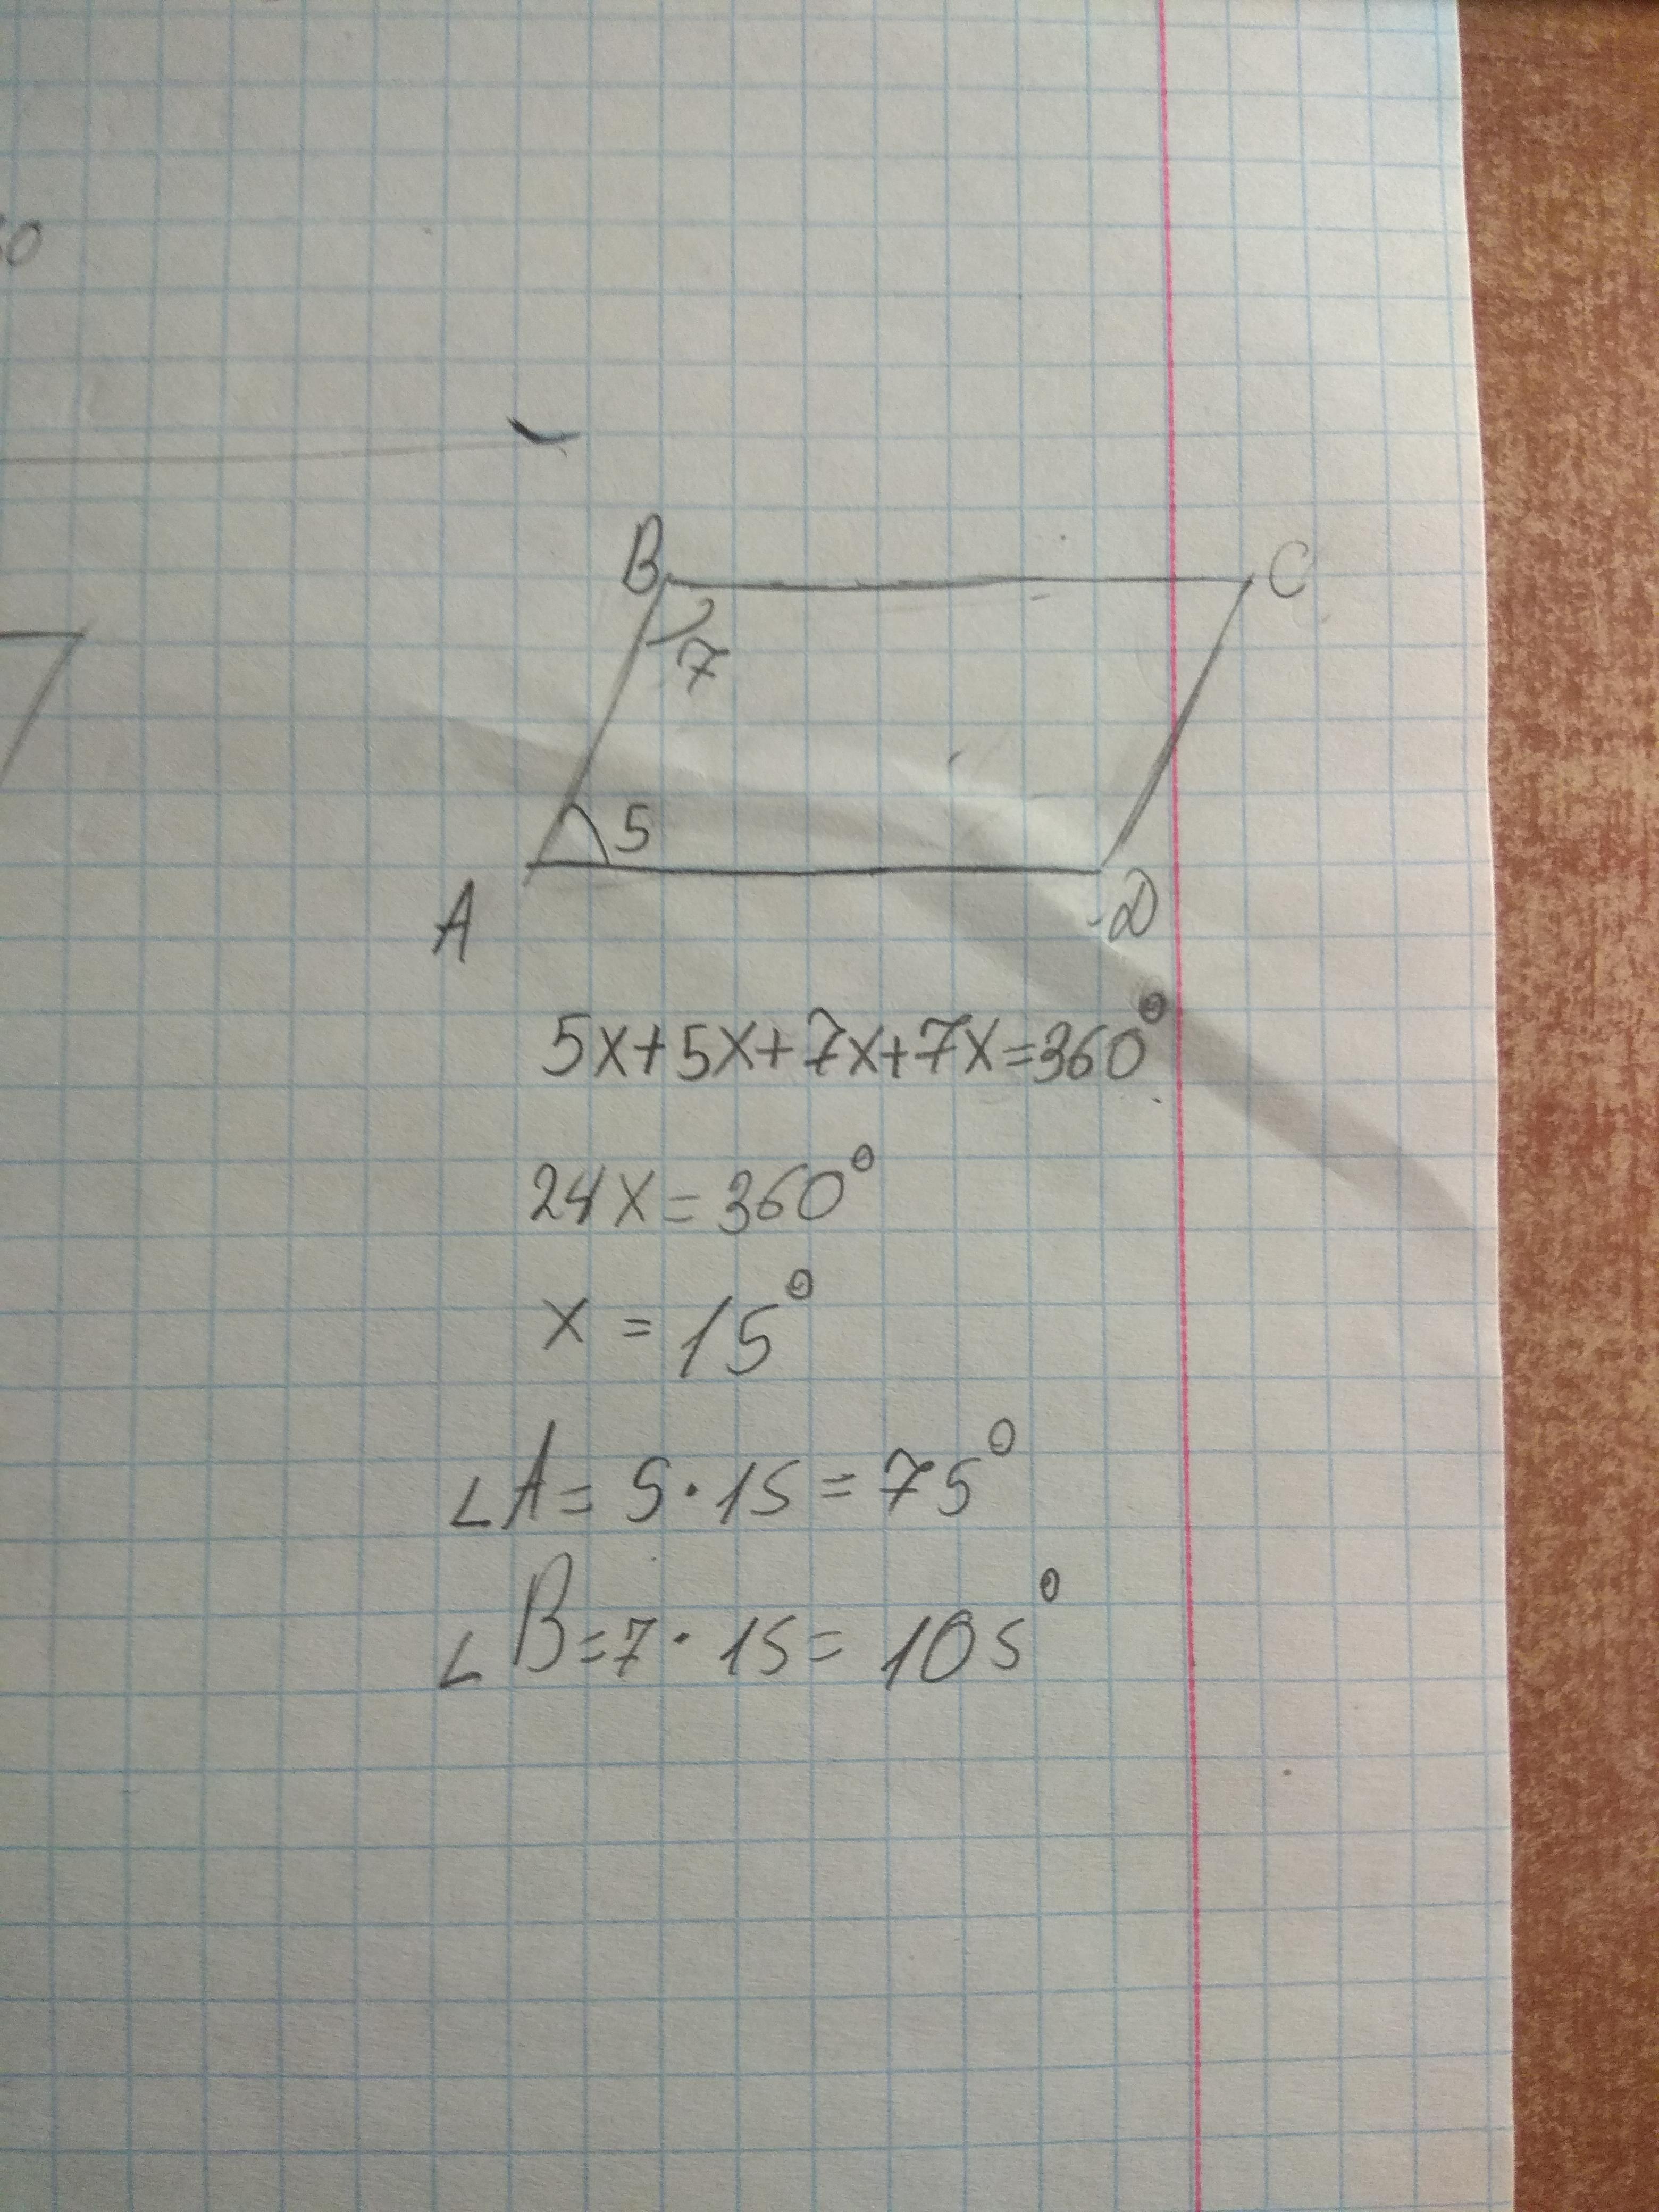 B
C
7
5
A
D
5x+5x+7x+7x=360°
24x=360°
x = 15°
∠A= 5·15=75°
∠B=7·15=105°